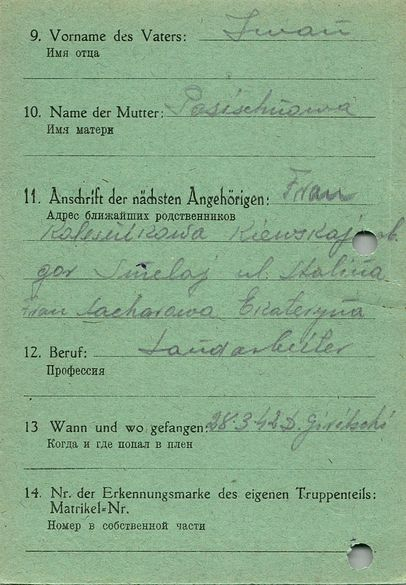 9. Vorname des Vaters: Iwan
Имя отца
10. Name der Mutter: Posischnowa
Имя матери
11. Anschrift der nächsten Angehörigen: Frau
Адрес ближайших родственников
Kolesnikowa Kiewskaj ob.
gor Smelaj ul. Stalina
Frau Sacharowa Ekateryna
12. Beruf: Landarbeiter
Профессия
13 Wann und wo gefangen: 28.3.42 D.
Когда и где попал в плен
14. Nr. der Erkennungsmarke des eigenen Truppenteils:
Matrikel-Nr.
Номер в собственной части